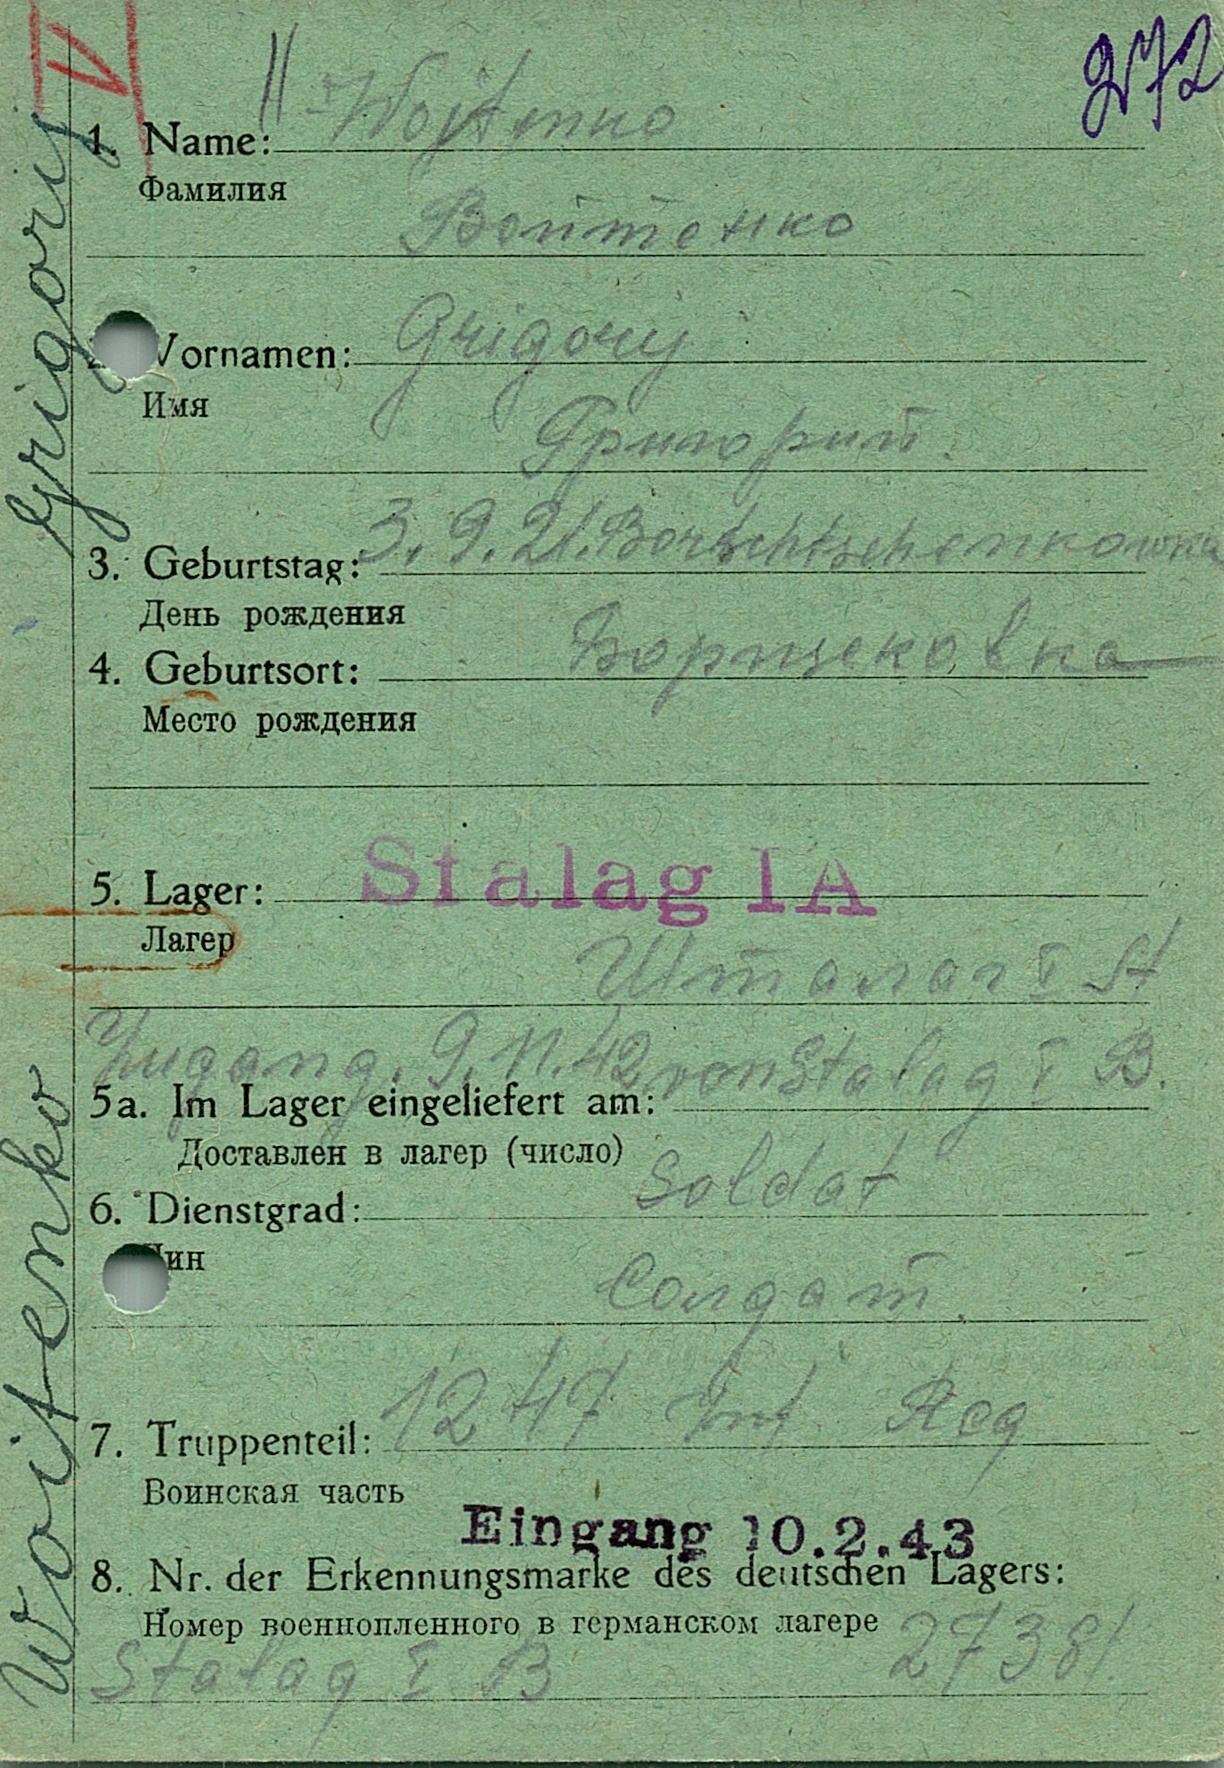 V
272
1. Name: Wojtenko
Фамилия
Войтенко
Vornamen: Grigorij
Имя
Григорий.
3. Geburtstag: 3. 9. 21. Bortschtschenkowka
День рождения
4. Geburtsort: Борщековка
Место рождения
5. Lager: Stalag IA
Лагер
Шталаг I St
Zugang. 9. 11. 42 von Stalag I B.
5a. Im Lager eingeliefert am:
Доставлен в лагер (число)
6. Dienstgrad: Soldat
Чин
Солдат.
7. Truppenteil: 1247 Inf. Reg
Воинская часть
Eingang 10.2.43
8. Nr. der Erkennungsmarke des deutschen Lagers:
Номер военнопленного в германском лагере
Stalag I B 27381.
Woitenko Grigorij